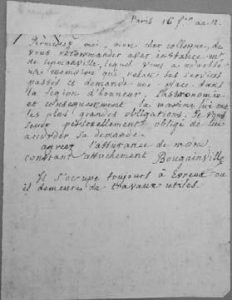 Paris 16 f.re an 12.
Permettez moi, mon cher collegue, de
vous recommander avec instance M.r
de lepicanville, lequel vous a
un memoire qui relate ses services
passés et demande une place dans
la legion d'honneur. L'astronomie
et consequemment la marine lui ont
les plus grandes obligations. Je vous
serai personnellement obligé de lui
accorder sa demande.
agreez l'assurance de mon
constant attachement Bougainville
Il s'occupe toujours à Evreux où
il demeure de travaux utiles.